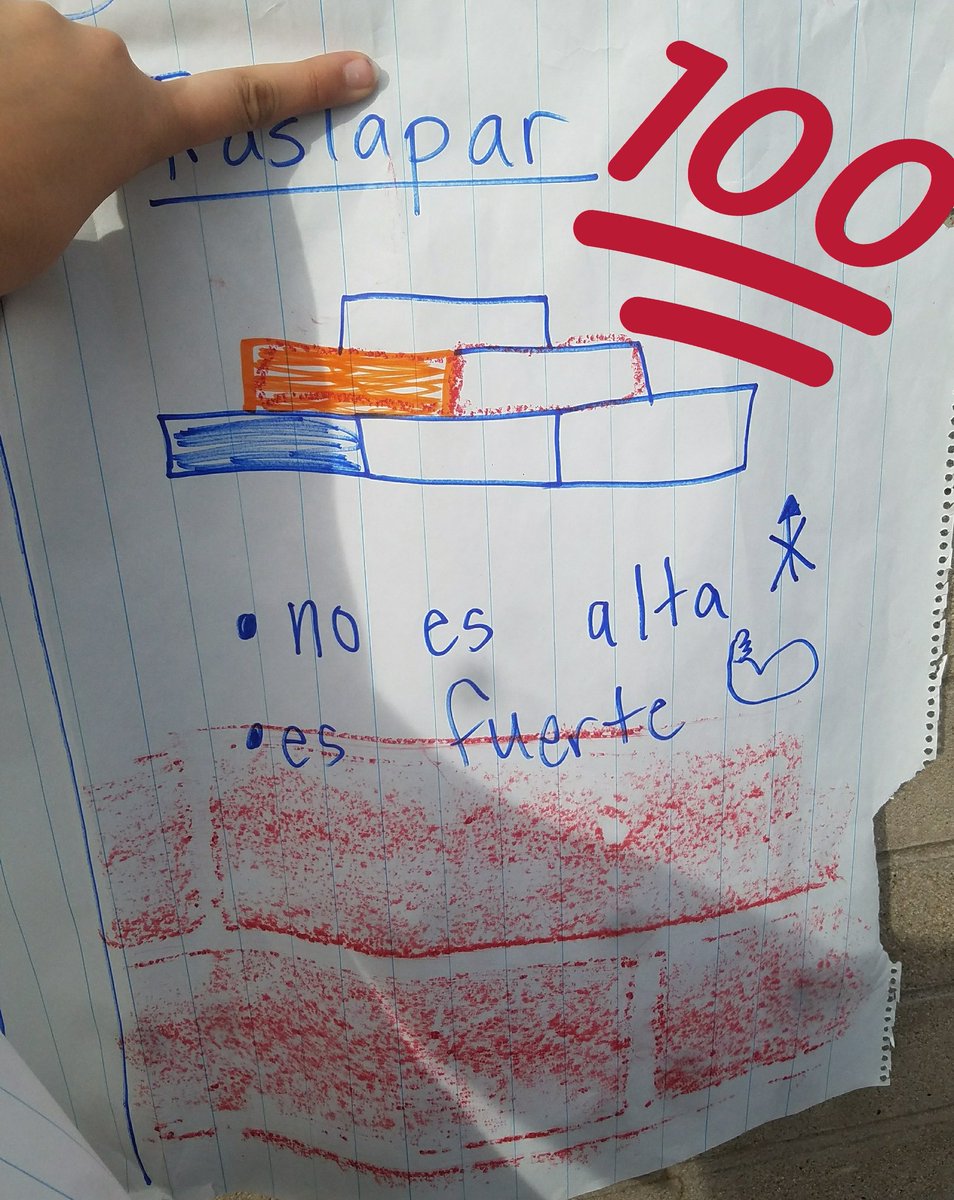 Traslapar
100
• no es alta
• es fuerte